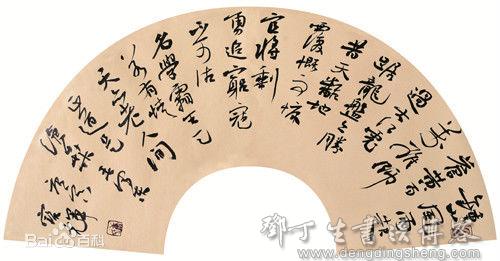 鍾山風雨起
蒼黄百万
雄师
過大江虎
踞龍盤今勝
昔天翻地
覆慨而慷
宜將剩
勇追窮寇
不可沽
名學霸王天
若有情
天亦老人间
正道是
滄桑
Bai百科
鄧丁生書法博客
www.dengdingsheng.com